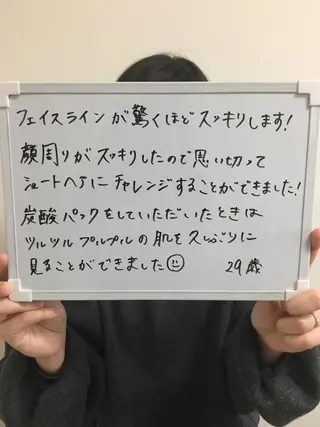 フェイスラインが驚くほどスッキリします!
顔周りがスッキリしたので思い切って
ショートヘアにチャレンジすることができました!
炭酸パックをしていただいたときは
ツルツルプルプルの肌を久しぶりに
見ることができました☺ 29歳